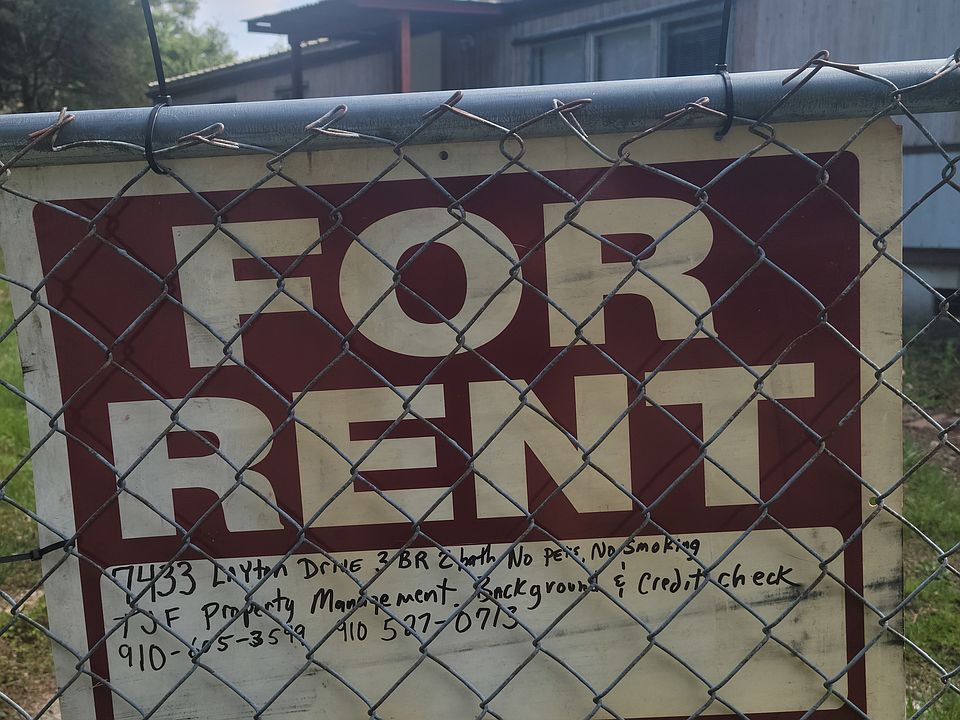 FOR
RENT
7433 Layton Drive 3 BR 2 bath No pets No smoking
TJF Property Management Background & Credit check
910-605-3599 910 527-0713